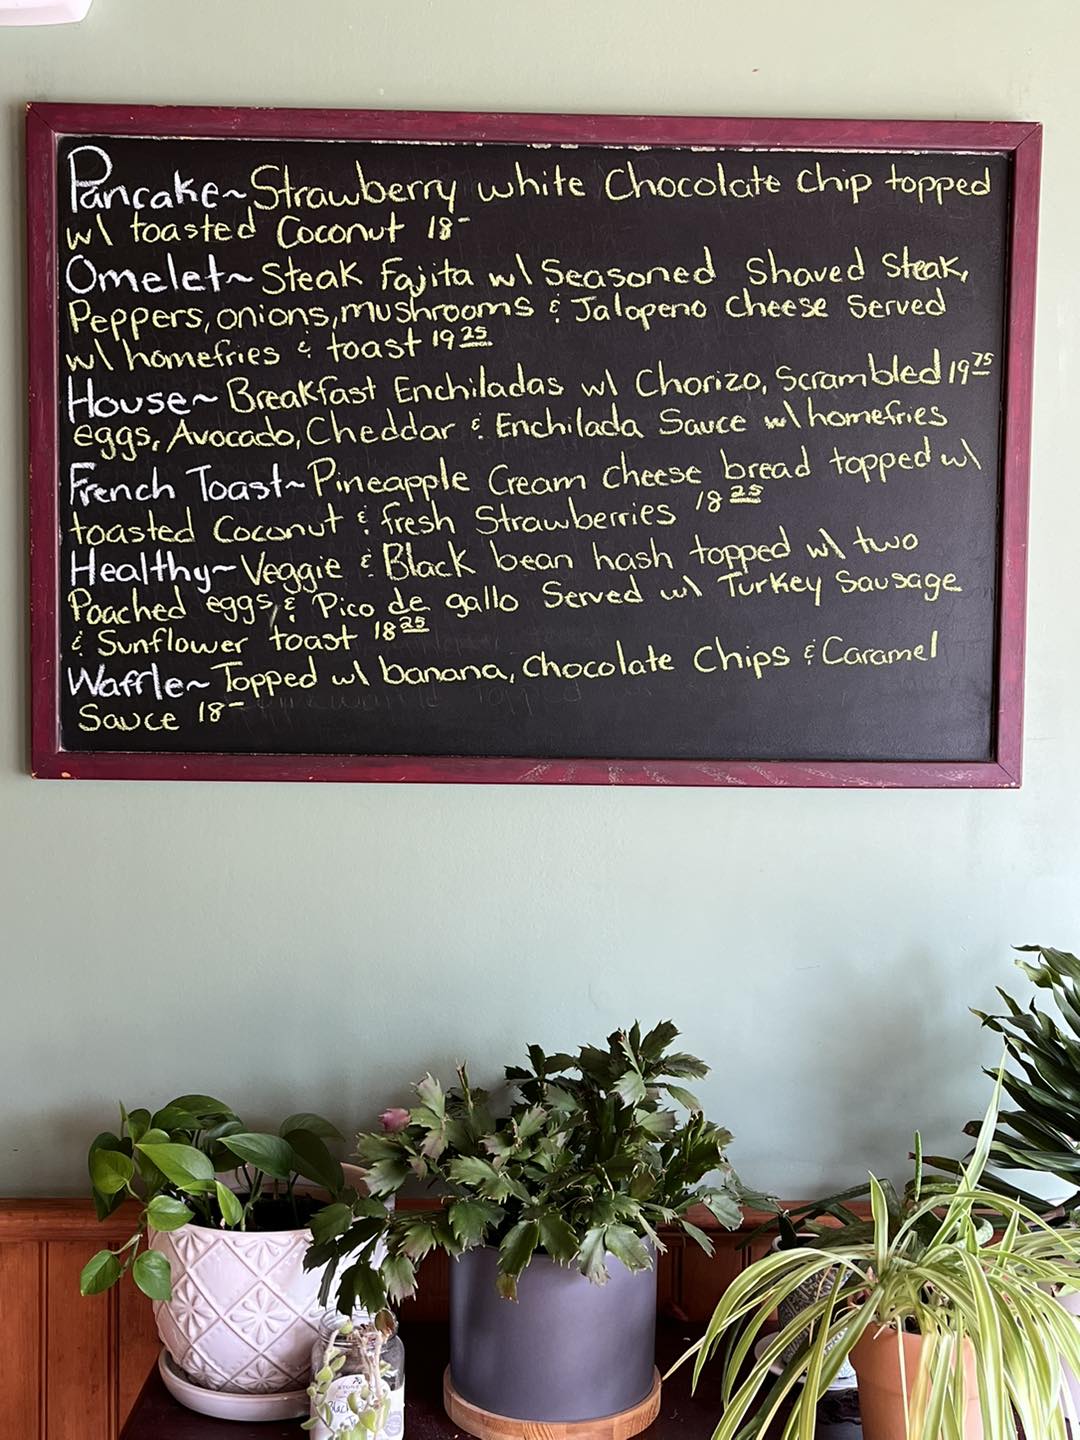 Pancake~Strawberry white Chocolate Chip topped
w\ toasted Coconut 18-
Omelet~Steak Fajita w\ Seasoned Shaved Steak,
Peppers, onions, mushrooms & Jalopeno Cheese Served
w\ homefries & toast 19 25
House~ Breakfast Enchiladas w\ Chorizo, Scrambled 19 75
eggs, Avocado, Cheddar & Enchilada Sauce w\ homefries
French Toast~Pineapple Cream Cheese bread topped w\
toasted Coconut & fresh Strawberries 18 25
Healthy~Veggie & Black bean hash topped w\ two
Poached eggs, & Pico de gallo Served w\ Turkey Sausage
& Sunflower toast 18 25
Waffle~ Topped w\ banana, Chocolate Chips & Caramel
Sauce 18-